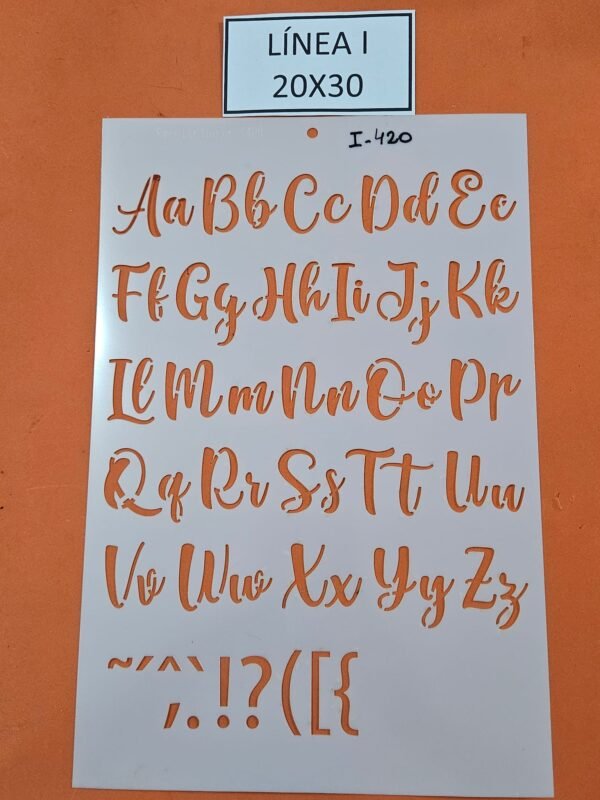 LÍNEA I
20X30
I-420
Aa Bb Cc Dd Ee
Ff Gg Hh Ii Jj Kk
Ll Mm Nn Oo Pp
Qq Rr Ss Tt Uu
Vv Ww Xx Yy Zz
~´^`;.!?([{